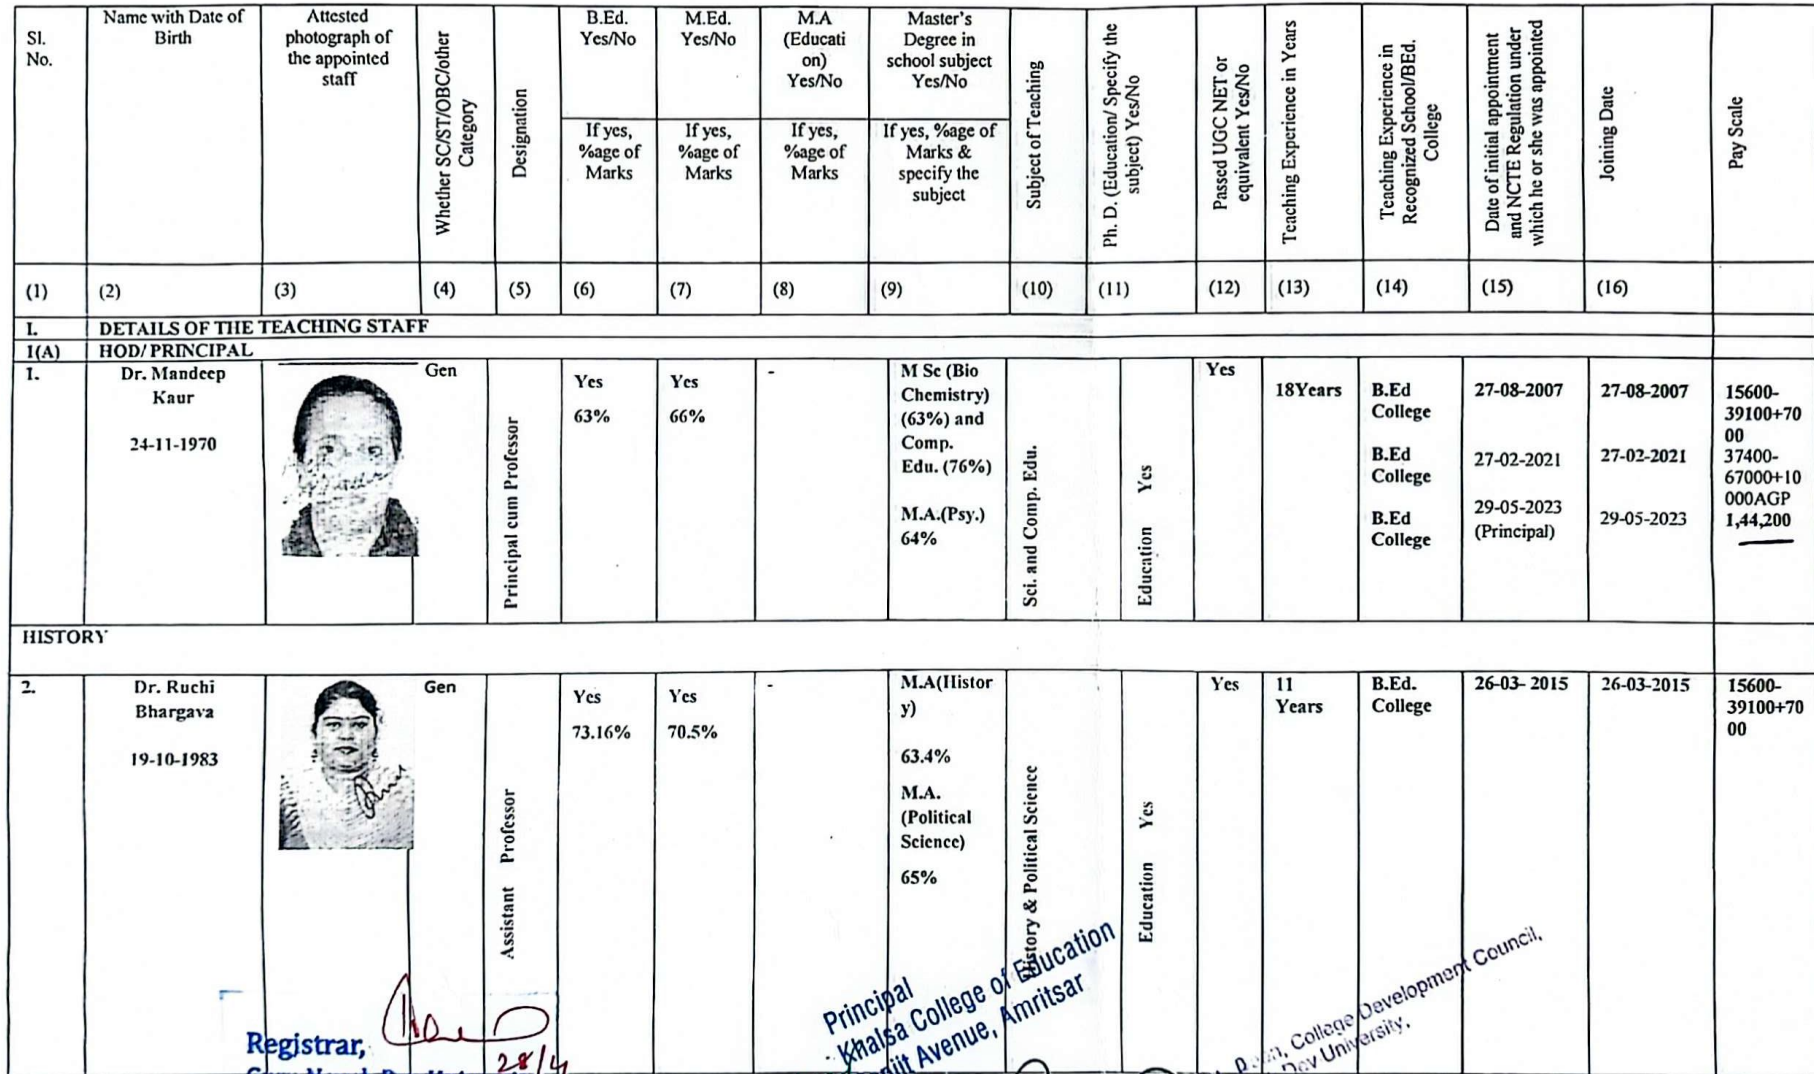 Sl. No.
Name with Date of Birth
Attested photograph of the appointed staff
Whether SC/ST/OBC/other Category
Designation
B.Ed. Yes/No
If yes, %age of Marks
M.Ed. Yes/No
If yes, %age of Marks
M.A (Educati on) Yes/No
If yes, %age of Marks
Master's Degree in school subject Yes/No
If yes, %age of Marks & specify the subject
Subject of Teaching
Ph. D. (Education/ Specify the subject) Yes/No
Passed UGC NET or equivalent Yes/No
Teaching Experience in Years
Teaching Experience in Recognized School/BEd. College
Date of initial appointment and NCTE Regulation under which he or she was appointed
Joining Date
Pay Scale
(1) (2) (3) (4) (5) (6) (7) (8) (9) (10) (11) (12) (13) (14) (15) (16)
I. DETAILS OF THE TEACHING STAFF
1(A) HOD/ PRINCIPAL
1.
Dr. Mandeep
Kaur
24-11-1970
Gen
Principal cum Professor
Yes
63%
Yes
66%
-
M Sc (Bio
Chemistry)
(63%) and
Comp.
Edu. (76%)
M.A.(Psy.)
64%
Sci. and Comp. Edu.
Education Yes
Yes
18Years
B.Ed
College
B.Ed
College
B.Ed
College
27-08-2007
27-02-2021
29-05-2023
(Principal)
27-08-2007
27-02-2021
29-05-2023
15600-
39100+70
00
37400-
67000+10
000AGP
1,44,200
HISTORY
2.
Dr. Ruchi
Bhargava
19-10-1983
Gen
Assistant Professor
Yes
73.16%
Yes
70.5%
-
M.A(Histor
y)
63.4%
M.A.
(Political
Science)
65%
History & Political Science
Education Yes
Yes
11
Years
B.Ed.
College
26-03- 2015
26-03-2015
15600-
39100+70
00
Registrar,
28/4
Principal
Khalsa College of Education
Avenue, Amritsar
College Development Council,
Dev University,